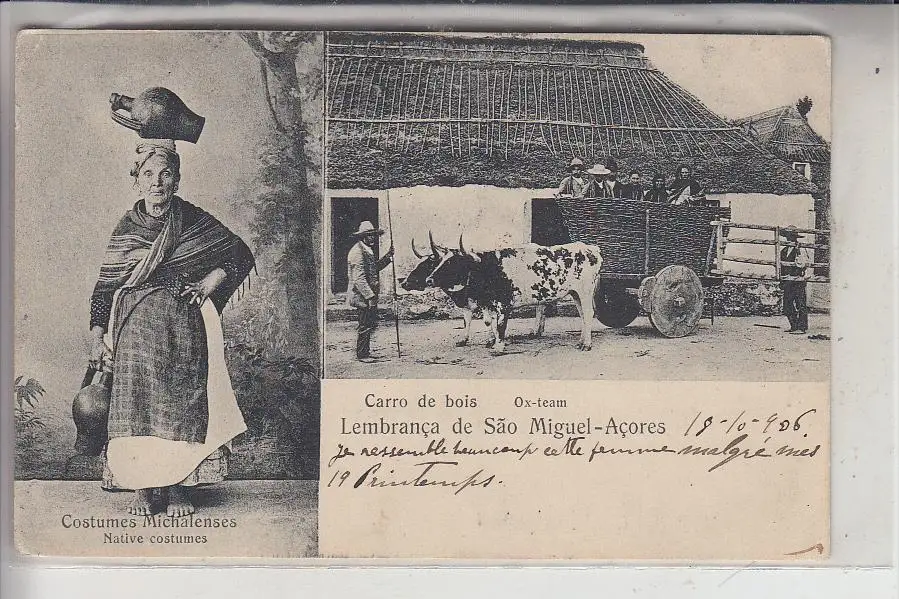 Carro de bois Ox-team
Lembrança de São Miguel-Açores 18-10-906.
je ressemble beaucoup cette femme malgré mes
19 Printemps.
Costumes Michalenses
Native costumes